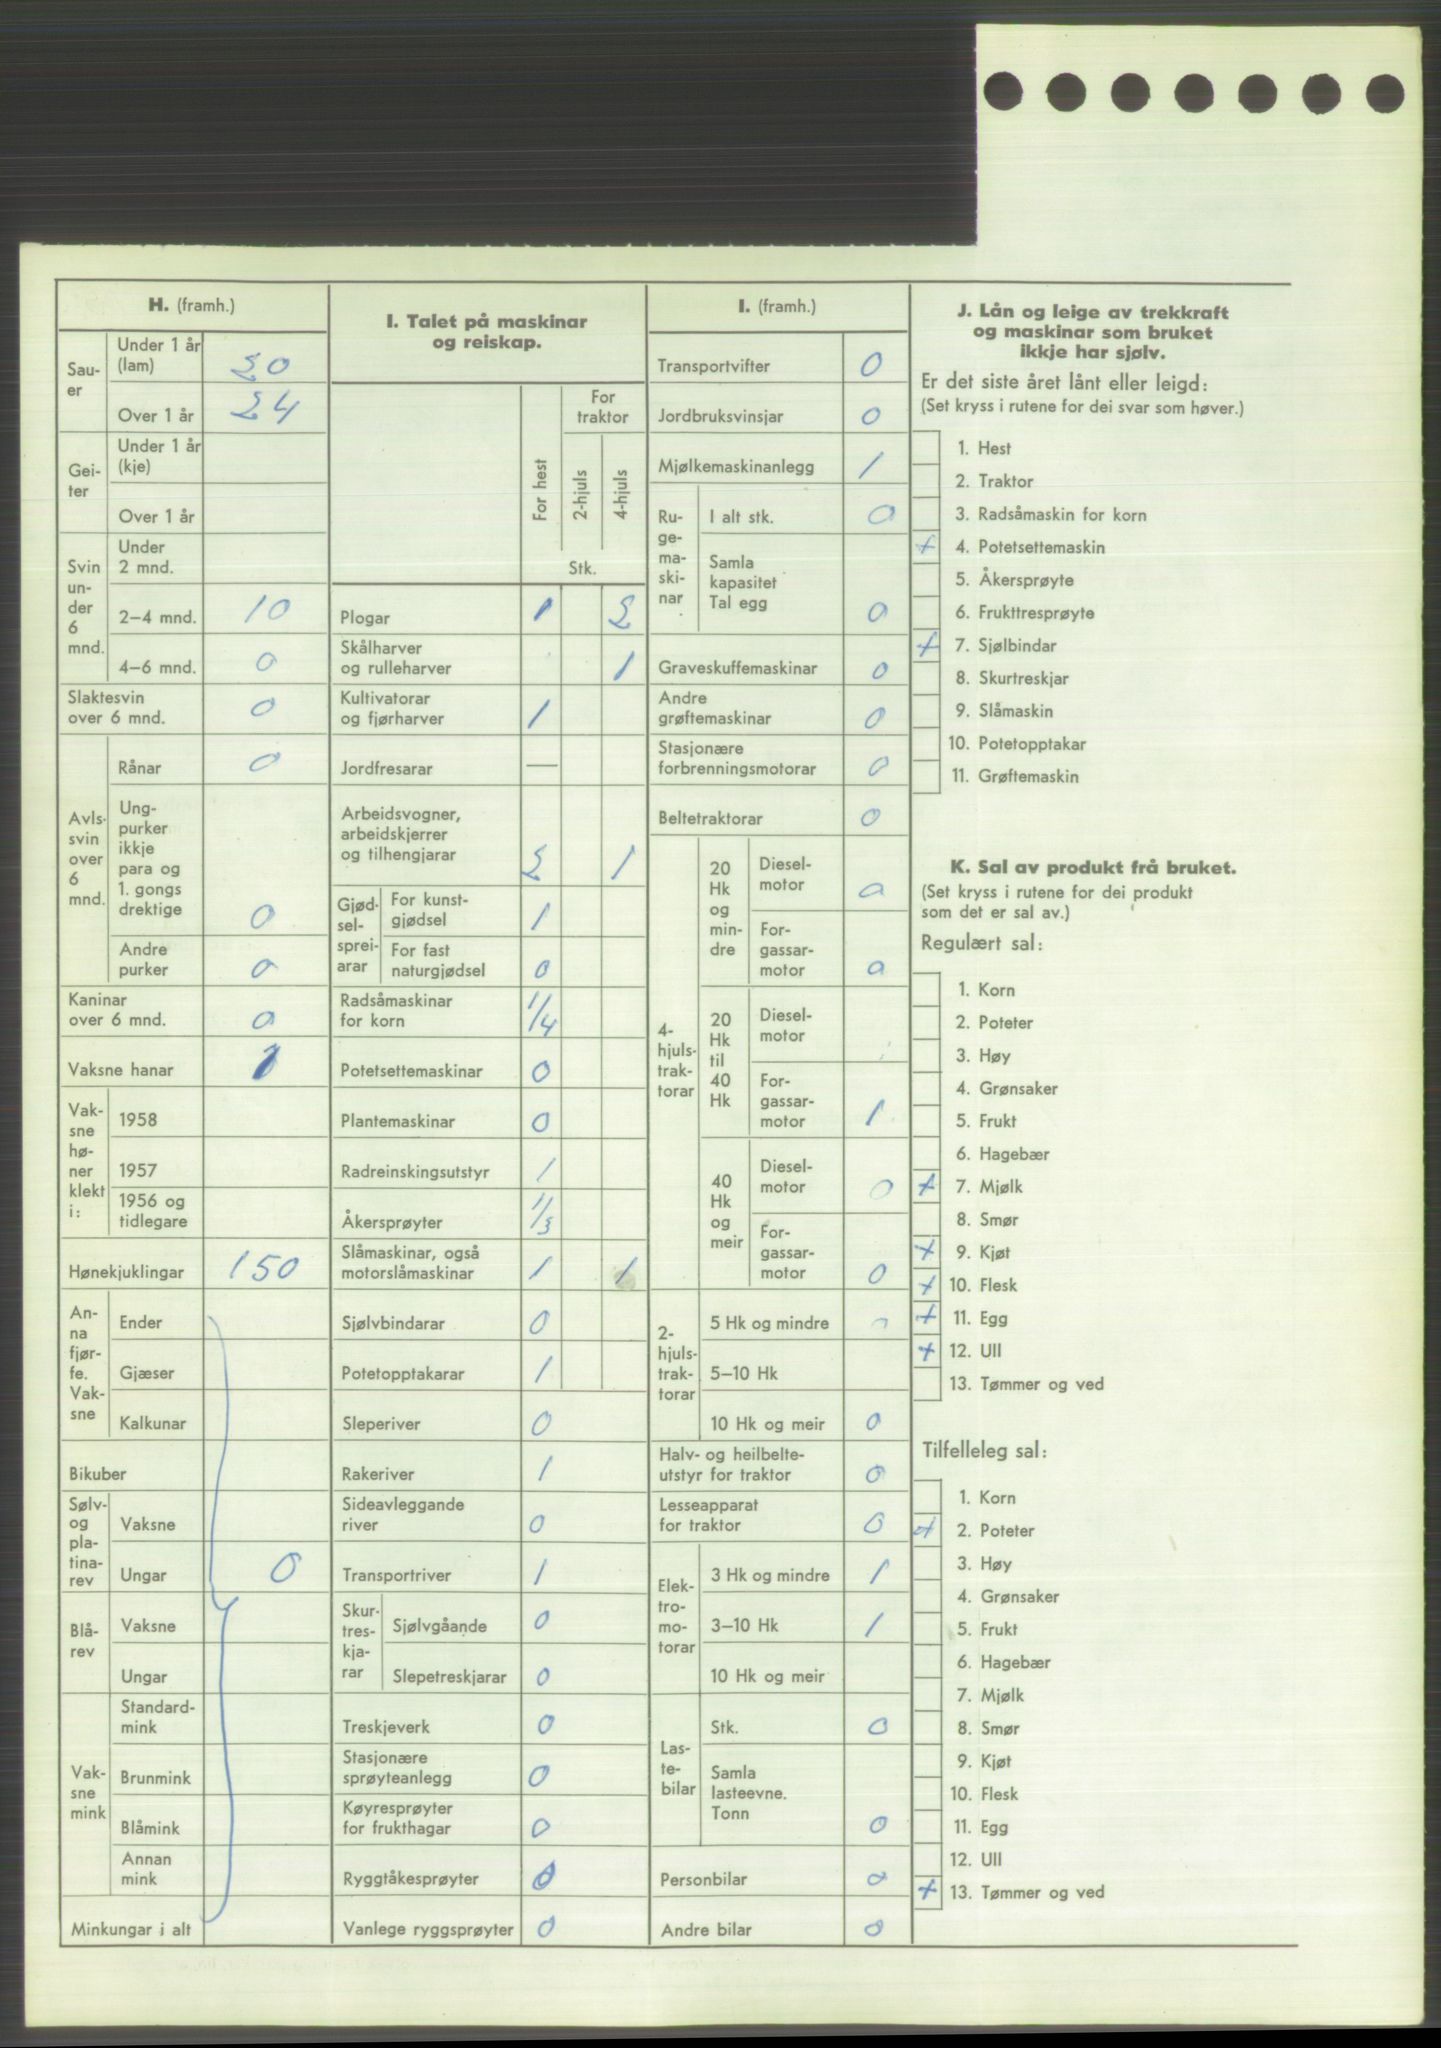 H. (framh.)
Sau-
er
Under 1 år
(lam) 20
Over 1 år 24
Gei-
ter
Under 1 år
(kje)
Over 1 år
Svin
un-
der
6
mnd.
Under
2 mnd.
2–4 mnd. 10
4–6 mnd. 0
Slaktesvin
over 6 mnd. 0
Avls-
svin
over
6
mnd.
Rånar 0
Ung-
purker
ikkje
para og
1. gongs
drektige 0
Andre
purker 0
Kaninar
over 6 mnd. 0
Vaksne hanar 1
Vak-
sne
hø-
ner
klekt
i:
1958
1957
1956 og
tidlegare
Hønekjuklingar 150
An-
na
fjør-
fe.
Vak-
sne
Ender
Gjæser
Kalkunar
Bikuber
Sølv-
og
pla-
tina-
rev
Vaksne
Ungar 0
Blå-
rev
Vaksne
Ungar
Vak-
sne
mink
Standard-
mink
Brunmink
Blåmink
Annan
mink
Minkungar i alt
I. Talet på maskinar
og reiskap.
For hest
For
traktor
2-hjuls
4-hjuls
Stk.
Plogar 1 2
Skålharver
og rulleharver 1
Kultivatorar
og fjørharver 1
Jordfresarar —
Arbeidsvogner,
arbeidskjerrer
og tilhengjarar 2 1
Gjød-
sel-
sprei-
arar
For kunst-
gjødsel 1
For fast
naturgjødsel 0
Radsåmaskinar
for korn 1/4
Potetsettemaskinar 0
Plantemaskinar 0
Radreinskingsutstyr 1
Åkersprøyter 1/3
Slåmaskinar, også
motorslåmaskinar 1 1
Sjølvbindarar 0
Potetopptakarar 1
Sleperiver 0
Rakeriver 1
Sideavleggande
river 0
Transportriver 1
Skur-
tres-
kja-
rar
Sjølvgåande 0
Slepetreskjarar 0
Treskjeverk 0
Stasjonære
sprøyteanlegg 0
Køyresprøyter
for frukthagar 0
Ryggtåkesprøyter 0
Vanlege ryggsprøyter 0
I. (framh.)
Transportvifter 0
Jordbruksvinsjar 0
Mjølkemaskinanlegg 1
Ru-
ge-
ma-
ski-
nar
I alt stk. 0
Samla
kapasitet
Tal egg 0
Graveskuffemaskinar 0
Andre
grøftemaskinar 0
Stasjonære
forbrenningsmotorar 0
Beltetraktorar 0
4-
hjuls-
trak-
torar
20
Hk
og
min-
dre
Diesel-
motor 0
For-
gassar-
motor 0
20
Hk
til
40
Hk
Diesel-
motor
For-
gassar-
motor 1
40
Hk
og
meir
Diesel-
motor 0
For-
gassar-
motor 0
2-
hjuls-
trak-
torar
5 Hk og mindre 0
5–10 Hk
10 Hk og meir 0
Halv- og heilbelte-
utstyr for traktor 0
Lesseapparat
for traktor 0
Elek-
tro-
mo-
torar
3 Hk og mindre 1
3–10 Hk 1
10 Hk og meir
Las-
te-
bilar
Stk. 0
Samla
lasteevne.
Tonn 0
Personbilar 0
Andre bilar 0
J. Lån og leige av trekkraft
og maskinar som bruket
ikkje har sjølv.
Er det siste året lånt eller leigd:
(Set kryss i rutene for dei svar som høver.)
1. Hest
2. Traktor
3. Radsåmaskin for korn
+ 4. Potetsettemaskin
5. Åkersprøyte
6. Frukttresprøyte
+ 7. Sjølbindar
8. Skurtreskjar
9. Slåmaskin
10. Potetopptakar
11. Grøftemaskin
K. Sal av produkt frå bruket.
(Set kryss i rutene for dei produkt
som det er sal av.)
Regulært sal:
1. Korn
2. Poteter
3. Høy
4. Grønsaker
5. Frukt
6. Hagebær
+ 7. Mjølk
8. Smør
+ 9. Kjøt
+ 10. Flesk
+ 11. Egg
+ 12. Ull
13. Tømmer og ved
Tilfelleleg sal:
1. Korn
+ 2. Poteter
3. Høy
4. Grønsaker
5. Frukt
6. Hagebær
7. Mjølk
8. Smør
9. Kjøt
10. Flesk
11. Egg
12. Ull
+ 13. Tømmer og ved